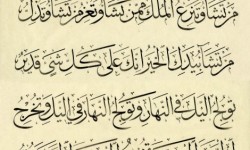 من تشاء وتنزع الملك ممن تشاء وتعز من تشاء وتذل
من تشاء بيدك الخير إنك على كل شيء قدير
تولج الليل في النهار وتولج النهار في الليل وتخرج